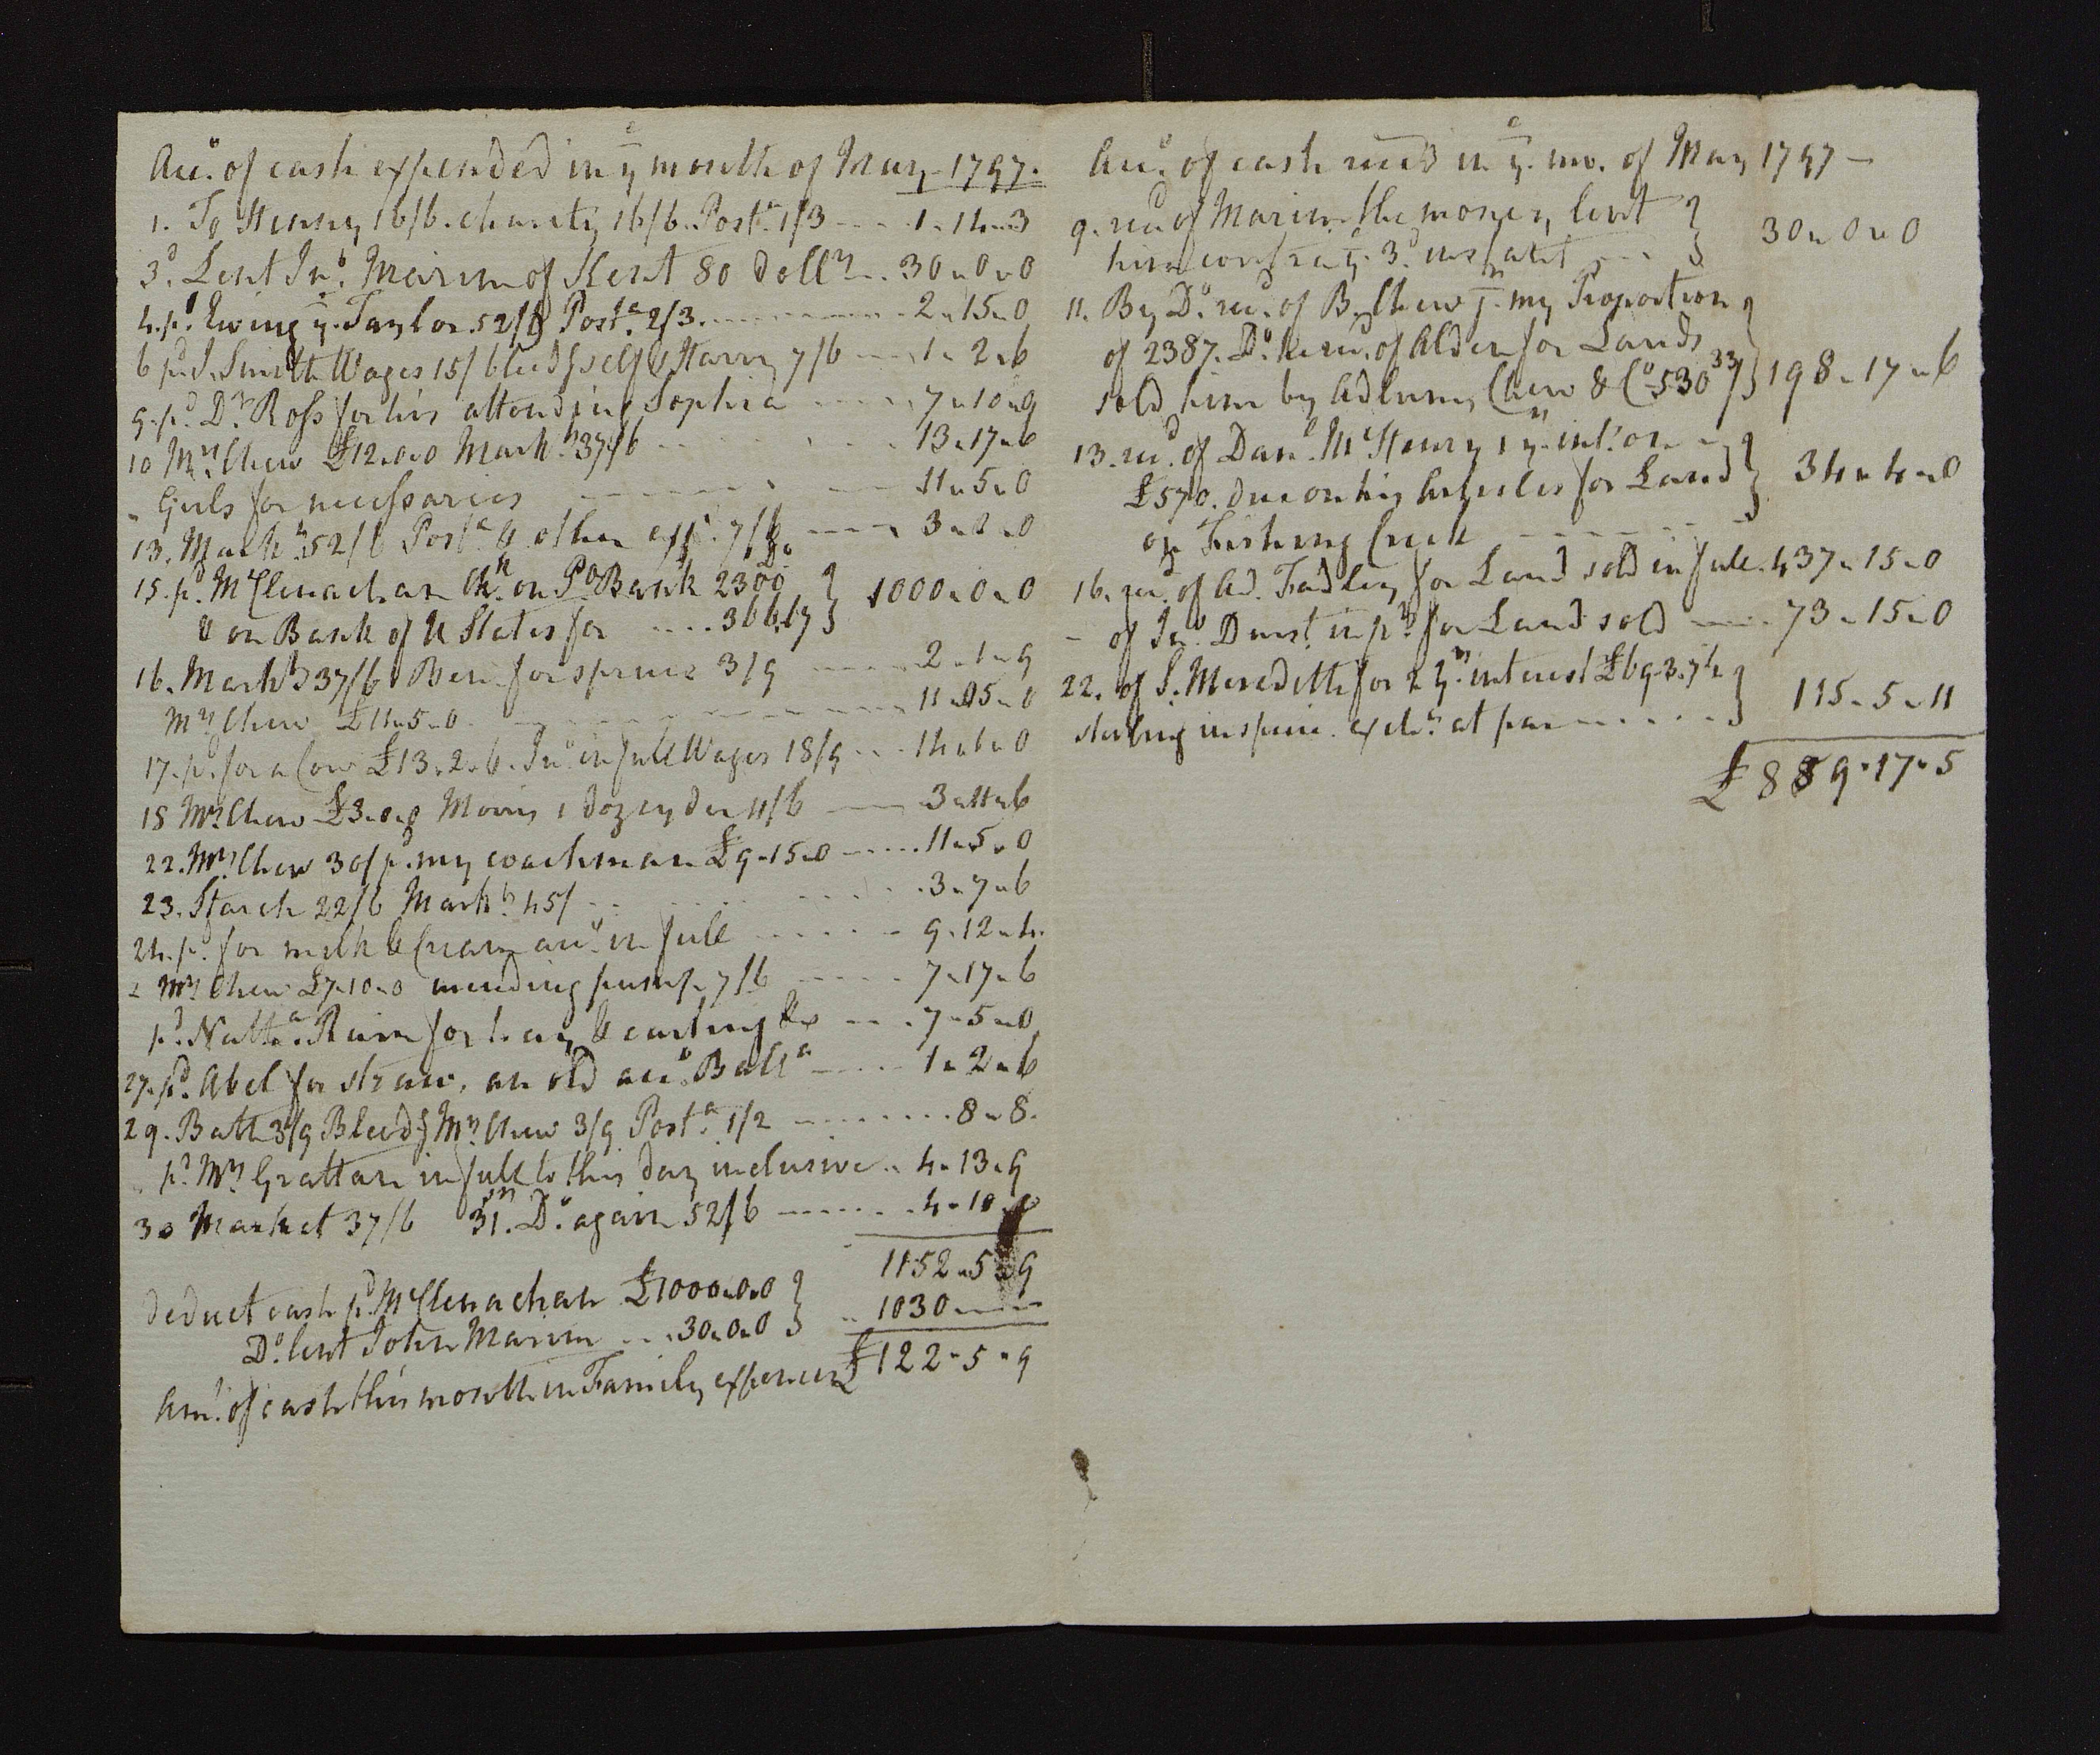 Acco. of cash expended in ye month of May 1797.
1. To Henry 16/6. charity 16/6. Posta. 1/3 - - - 1 " 14 " 3
3d. Lent Jno. Marim of Kent 80 Dollrs. . 30 " 0 " 0
4. pd. Ewing ye. Taylor 52/9 Posta. 2/3. - - - - 2 " 15 " 0
6 pd. J. Smith Wages 15/ bleedg self & Harry 7/6 - - 1 " 2 " 6
9. pd. Dr. Ross for his attending Sophia - - - - 7 " 10 " 9
10 Mrs. Chew £12 " 0 " 0 Markt. 37/6 - - - - 13 " 17 " 6
" Girls for necessaries - - - - 11 " 5 " 0
13. Markt. 52/6 Posta. & other exps. 7/6 - - - - 3 " 0 " 0
15. pd. McClenachan Ck. on Pa. Bank 2300 Do. } 1000 " 0 " 0
& on Bank of U States for . . . . 366.67 }
16. Markt. 37/6 Ben for spruce 3/9 - - - - 2 " 1 " 9
Mrs. Chew £11 " 5 " 0 - - - - 11 " 05 " 0
17. pd. for a Cow £13 " 2 " 6. Jno. in full Wages 18/9 - - 14 " 6 " 0
18 Mrs. Chew £3 " 0 " 0 Morris 1 doz cyder 11/6 - - 3 " 11 " 6
22. Mrs. Chew 30/ pd. my coachman £9 " 15 " 0 - - - . 11 " 5 " 0
23. Starch 22/6 Markt. 45/ - - - - 3 " 7 " 6
24. pd. for milk & Cream acco. in full - - - - 9 " 12 " 4.
" Mrs. Chew £7 " 10 " 0 mending pump 7/6 - - - - 7 " 17 " 6
pd. Natha. for hay & carting &c - - - 7 " 5 " 0
27. pd. Abel for straw, an old acco. Balla. - - - - 1 " 2 " 6
29. Bath 3/9 Bleedg Mrs. Chew 3/9 Posta. 1/2 - - - - 8 " 8.
" pd. Mrs. Grattan in full to this day inclusive . . 4 " 13 " 9
30 Market 37/6 31st. Do. again 52/6 - - - - 4 " 10 " 0
1152 " 5 " 9
Deduct cash pd. McClenachan £1000 " 0 " 0 }
Do. lent John Marim - - . 30 " 0 " 0 } . . 1030 " - " -
Amt. of cash this month in Family expences £122 " 5 " 9
Acco. of cash recd in ye. mo. of May 1797 -
9. recd of Marim the money lent }
him ye. 3d. instant - - - } 30 " 0 " 0
11. By Do. recd. of B. Chew jr. my Proportion }
of 2387. Do. he recd. of Alden for Lands
sold him by Adlum, Chew & Co. 530 33/ } 198 " 17 " 6
13. recd. of Danl. McHenry 1 yrs. intt. on }
£570. due on his Articles for Land } 34 " 4 " 0
on Fishing Creek - - - -
16. recd. of Ad. Fadley for Land sold in full . 437 " 15 " 0
- of Jno. Durst in pt. for Land sold - - - . 73 " 15 " 0
22. of S. Meredith for 2 yrs. interest £69 " 3 " 7 1/2 }
sterling in specie. excha. at par - - - - - } 115 " 5 " 11
£ 889 " 17 " 5